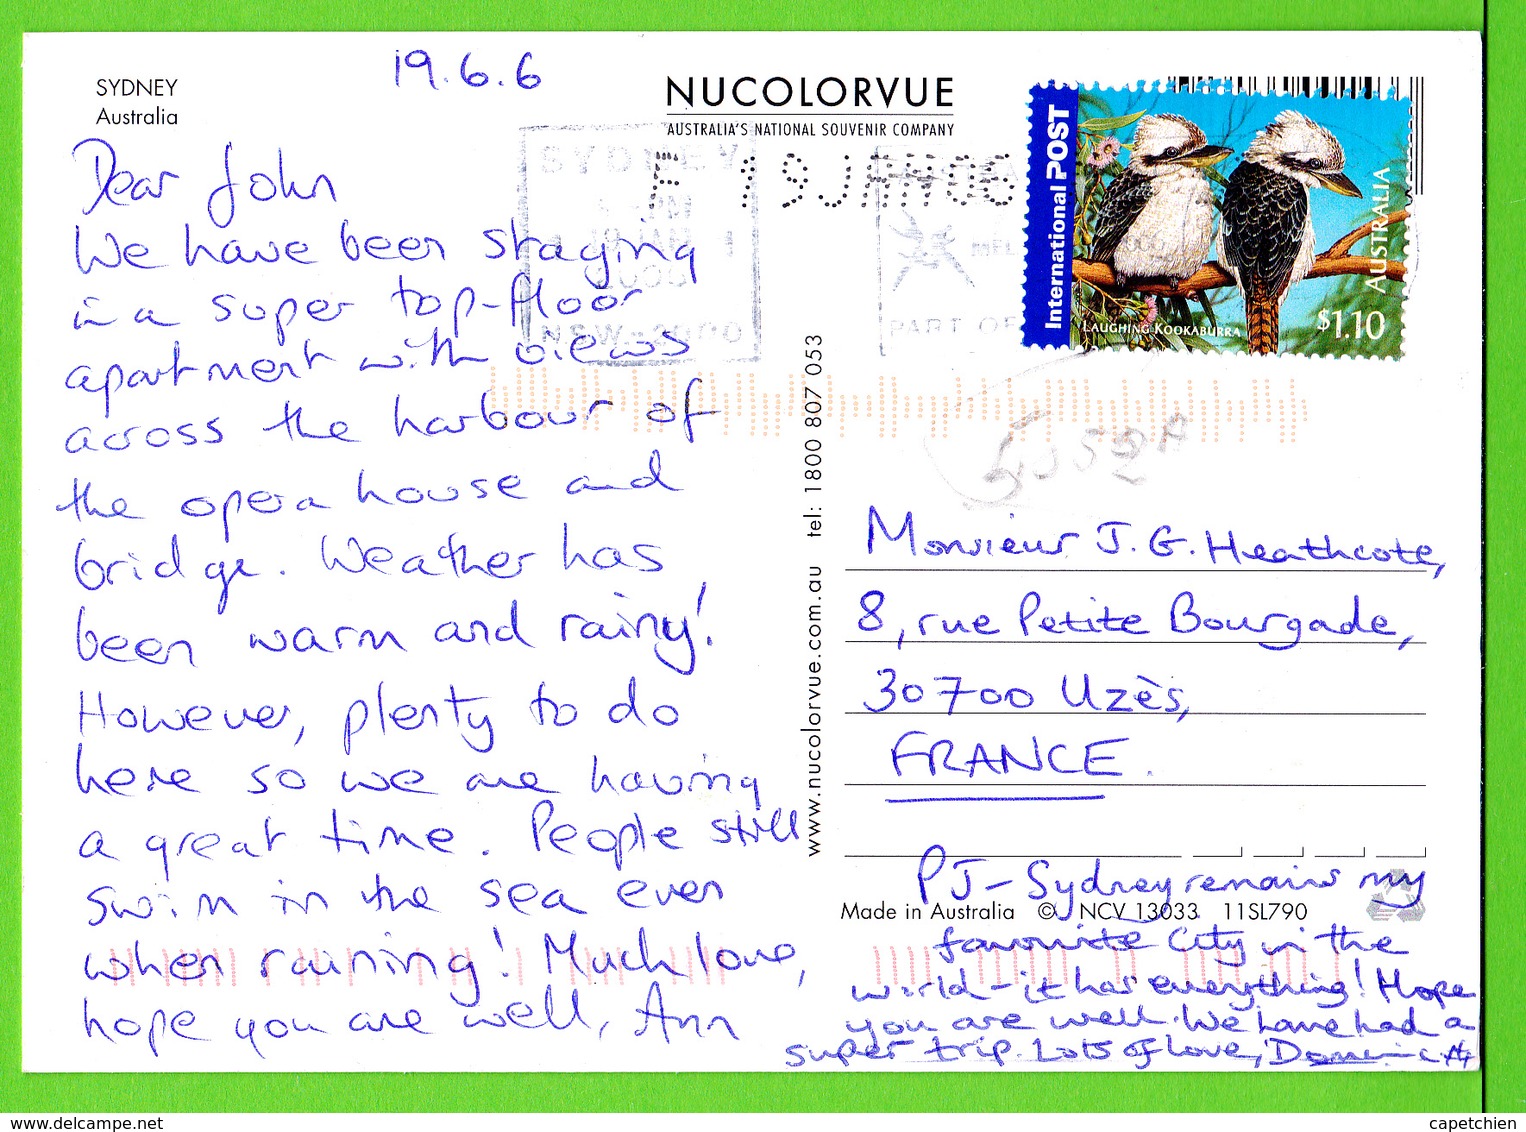 SYDNEY
Australia
19.6.6
NUCOLORVUE
AUSTRALIA'S NATIONAL SOUVENIR COMPANY
Dear John
We have been staying
in a super top-floor
apartment with views
across the harbour of
the opera house and
bridge. Weather has
been warm and rainy!
However, plenty to do
here so we are having
a great time. People still
swim in the sea even
when raining! Much love,
hope you are well, Ann
SYDNEY
NSW-2000
PART OF
International POST
LAUGHING KOOKABURRA
AUSTRALIA
$1.10
www.nucolorvue.com.au tel: 1800 807 053
Monsieur J. G. Heathcote,
8, rue Petite Bourgade,
30700 Uzès,
FRANCE.
PJ - Sydney remains my
Made in Australia © NCV 13033 11SL790
favourite city in the
world - it has everything! Hope
you are well. We have had a
super trip. Lots of love,
www.delcampe.net
capetchien